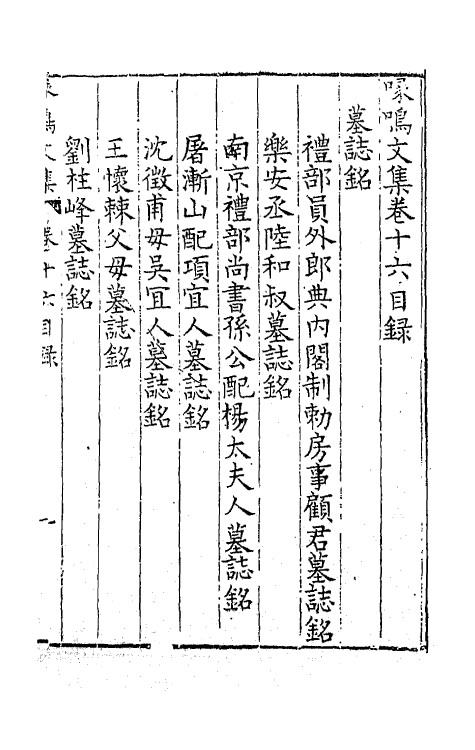 喙鳴文集卷十六目録
墓誌銘
禮部員外郎典内閣制勅房事顧君墓誌銘
樂安丞陸和叔墓誌銘
南京禮部尚書孫公配楊太夫人墓誌銘
屠漸山配項宜人墓誌銘
沈徵甫母吳宜人墓誌銘
王懷棘父母墓誌銘
劉柱峰墓誌銘
喙鳴文集 卷十六目録 一